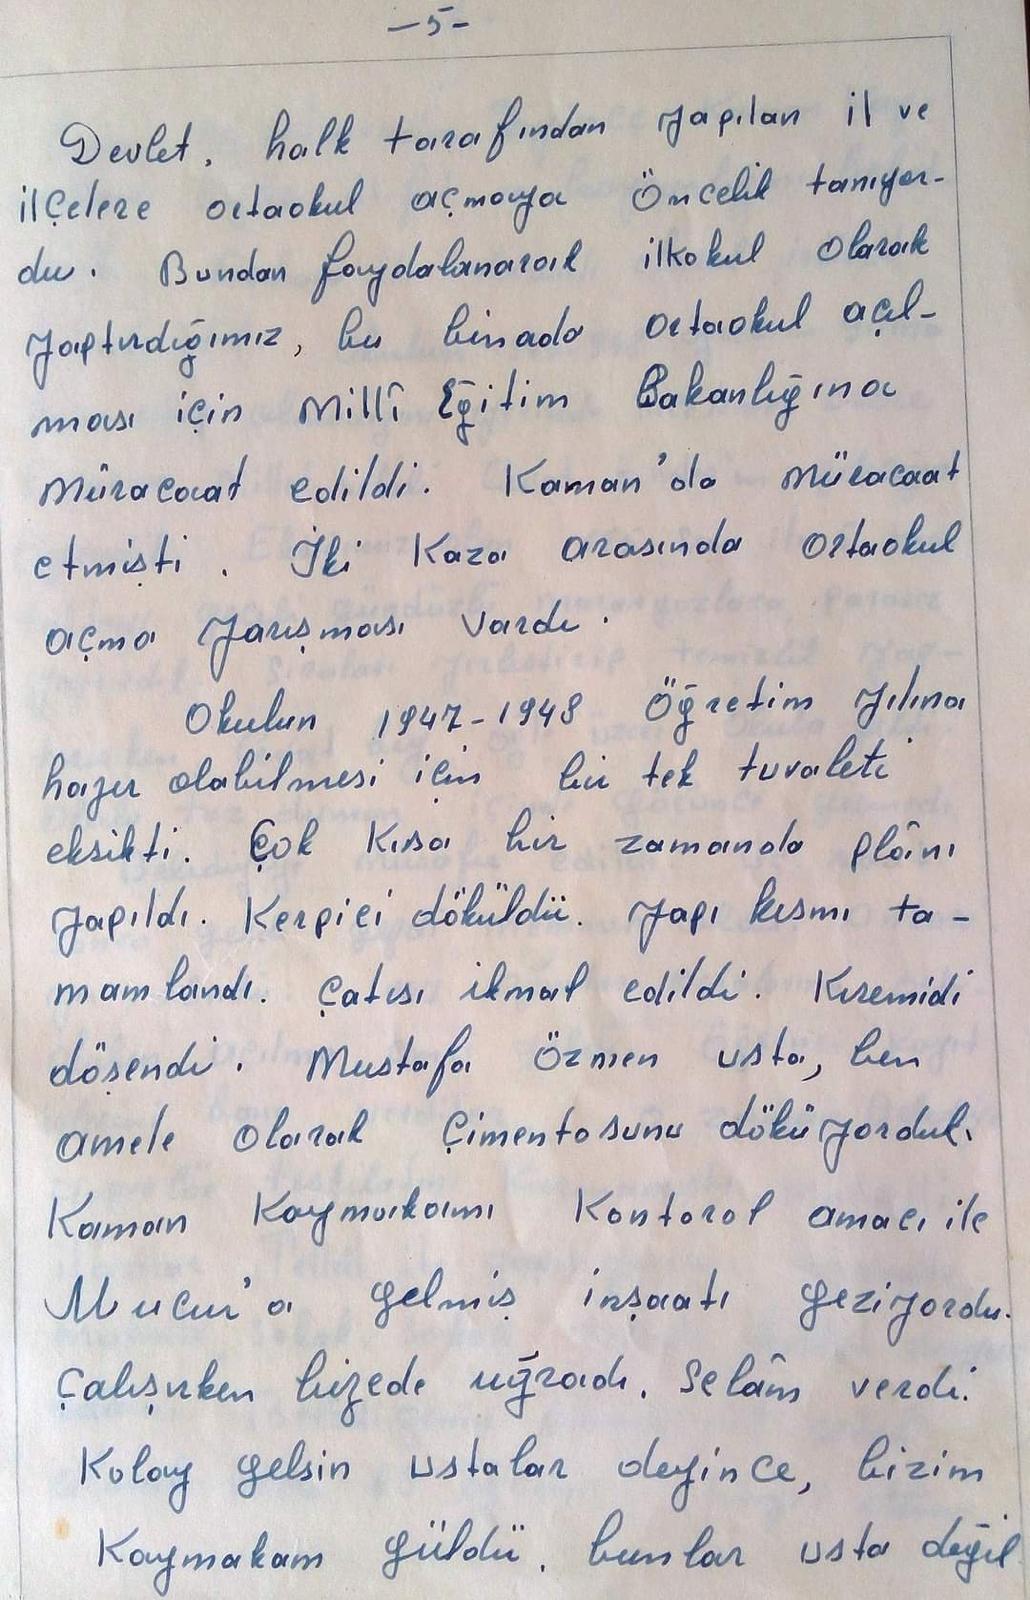 -5-
Devlet, halk tarafından yapılan il ve
ilçelere ortaokul açmaya öncelik tanıyor-
du. Bundan faydalanarak ilkokul olarak
yaptırdığımız, bu binada ortaokul açıl-
ması için Millî Eğitim Bakanlığına
müracaat edildi. Kaman'da müracaat
etmişti. İki Kaza arasında ortaokul
açma yarışması vardı.
Okulun 1947-1948 Öğretim yılına
hazır olabilmesi için bir tek tuvaleti
eksikti. Çok kısa bir zamanda plânı
yapıldı. Kerpici döküldü. Yapı kısmı ta-
mamlandı. Çatısı ikmal edildi. Kiremidi
döşendi. Mustafa Özmen usta, ben
amele olarak çimentosunu döküyorduk.
Kaman Kaymakamı Kontorol amacı ile
Mucur'a gelmiş inşaatı geziyordu.
Çalışırken bizede uğradı. Selâm verdi.
Kolay gelsin ustalar deyince, bizim
Kaymakam güldü. bunlar usta değil